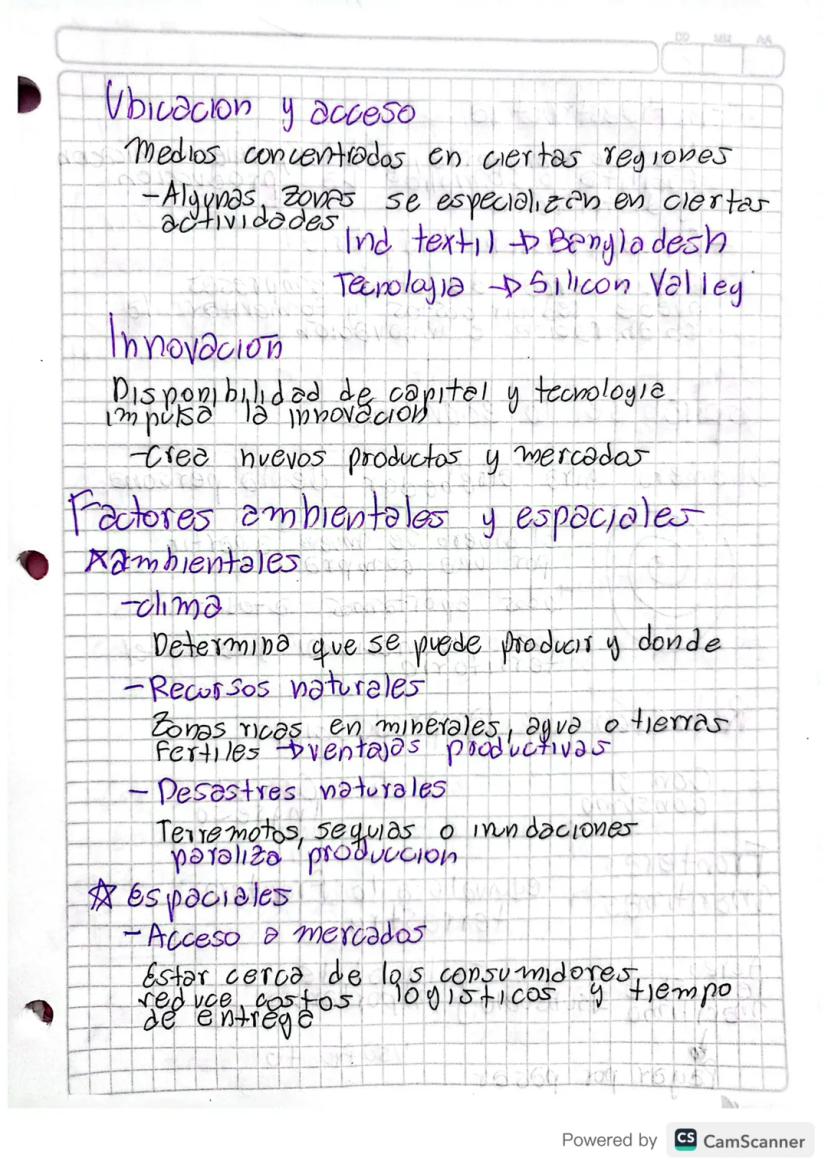 DD MM AA
Ubicacion y acceso
Medios concentrados en ciertas regiones
-Algunas zonas se especializan en ciertas
actividades
Ind textil → Bangladesh
Tecnologia → Silicon Valley
Innovacion
Disponibilidad de capital y tecnologia
impulsa la innovacion
-Crea nuevos productos y mercados
Factores ambientales y espaciales
☆ambientales
-clima
Determina que se puede producir y donde
-Recursos naturales
Zonas ricas en minerales, agua o tierras
fertiles → ventajas productivas
- Desastres naturales
Terremotos, sequias o inundaciones
paraliza produccion
☆ Espaciales
-Acceso a mercados
Estar cerca de los consumidores
reduce costos logisticos y tiempo
de entrega
Powered by CS CamScanner